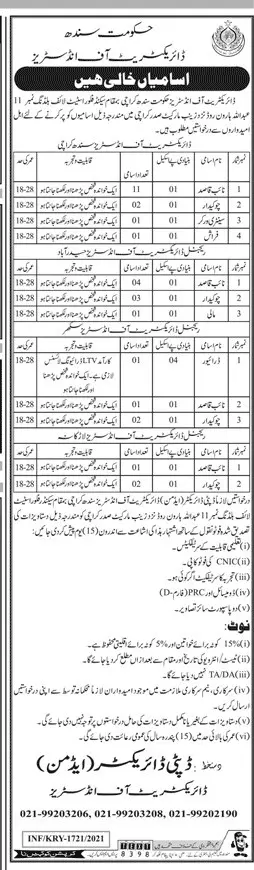 حکومت سندھ
ڈائریکٹریٹ آف انڈسٹریز
اسامیاں خالی ھیں
ڈائریکٹریٹ آف انڈسٹریز حکومت سندھ کراچی بمقام سیکنڈ فلور اسٹیٹ لائف بلڈنگ نمبر 11
عبداللہ ہارون روڈ نزد زینب مارکیٹ صدر کراچی میں مندرجہ ذیل اسامیوں کو پر کرنے کے لئے اہل
امیدواروں سے درخواستیں مطلوب ہیں۔
ڈائریکٹریٹ آف انڈسٹریز سندھ کراچی
نمبر شمار نام اسامی بنیادی پے اسکیل تعداد اسامی قابلیت و تجربہ عمر کی حد
1 نائب قاصد 01 11 ایک خواندہ شخص پڑھنا اور لکھنا جانتا ہو 18-28
2 چوکیدار 01 02 ایک خواندہ شخص پڑھنا اور لکھنا جانتا ہو 18-28
3 سینٹری ورکر 01 01 ایک خواندہ شخص پڑھنا اور لکھنا جانتا ہو 18-28
4 فراش 01 01 ایک خواندہ شخص پڑھنا اور لکھنا جانتا ہو 18-28
ریجنل ڈائریکٹریٹ آف انڈسٹریز حیدرآباد
نمبر شمار نام اسامی بنیادی پے اسکیل تعداد اسامی قابلیت و تجربہ عمر کی حد
1 نائب قاصد 01 04 ایک خواندہ شخص پڑھنا اور لکھنا جانتا ہو 18-28
2 چوکیدار 01 03 ایک خواندہ شخص پڑھنا اور لکھنا جانتا ہو 18-28
3 مالی 01 01 ایک خواندہ شخص پڑھنا اور لکھنا جانتا ہو 18-28
ریجنل ڈائریکٹریٹ آف انڈسٹریز سکھر
نمبر شمار نام اسامی بنیادی پے اسکیل تعداد اسامی قابلیت و تجربہ عمر کی حد
1 ڈرائیور 04 01 کارآمد LTV ڈرائیونگ لائسنس لازمی ہے۔ ایک خواندہ شخص پڑھنا اور لکھنا جانتا ہو 18-28
2 نائب قاصد 01 01 ایک خواندہ شخص پڑھنا اور لکھنا جانتا ہو 18-28
3 چوکیدار 01 02 ایک خواندہ شخص پڑھنا اور لکھنا جانتا ہو 18-28
ریجنل ڈائریکٹریٹ آف انڈسٹریز لاڑکانہ
نمبر شمار نام اسامی بنیادی پے اسکیل تعداد اسامی قابلیت و تجربہ عمر کی حد
1 نائب قاصد 01 01 ایک خواندہ شخص پڑھنا اور لکھنا جانتا ہو 18-28
2 چوکیدار 01 02 ایک خواندہ شخص پڑھنا اور لکھنا جانتا ہو 18-28
درخواستیں لازماً ڈپٹی ڈائریکٹر (ایڈمن) ڈائریکٹریٹ آف انڈسٹریز سندھ کراچی بمقام سیکنڈ فلور اسٹیٹ
لائف بلڈنگ نمبر 11 عبداللہ ہارون روڈ نزد زینب مارکیٹ صدر کراچی کو مندرجہ ذیل دستاویزات کی
تصدیق شدہ فوٹو نقول کے ساتھ اشتہار ہذا کی اشاعت سے اندرون (15) یوم پیش کر دی جائیں:
(i) تعلیمی قابلیت کے سرٹیفکیٹس۔
(ii) CNIC کی فوٹو کاپی۔
(iii) تجربہ کا سرٹیفکیٹ اگر کوئی ہو۔
(iv) ڈومیسائل اور PRC (فارم-D)
(v) دو پاسپورٹ سائز تصاویر۔
نوٹ:
(i) 15% کوٹہ برائے خواتین اور 5% کوٹہ برائے اقلیتی محفوظ ہے۔
(ii) ٹیسٹ / انٹرویو کی تاریخ اور مقام سے بعد ازاں مطلع کر دیا جائے گا۔
(iii) TA/DA نہیں دیا جائے گا۔
(iv) سرکاری، نیم سرکاری ملازمت میں موجود امیدواران لازماً محکمانہ توسط سے اپنی درخواستیں
ارسال کریں۔
(v) دستاویزات کے بغیر یا نامکمل دستاویزات کی حامل درخواستوں پر توجہ نہیں دی جائے گی۔
(vi) عمر کی بالائی حد میں (15) پندرہ سال کی عمومی رعائت دی جائے گی۔
دستخط: ڈپٹی ڈائریکٹر (ایڈمن)
ڈائریکٹریٹ آف انڈسٹریز
021-99203206, 021-99203208, 021-99202190
INF/KRY-1721/2021
8398